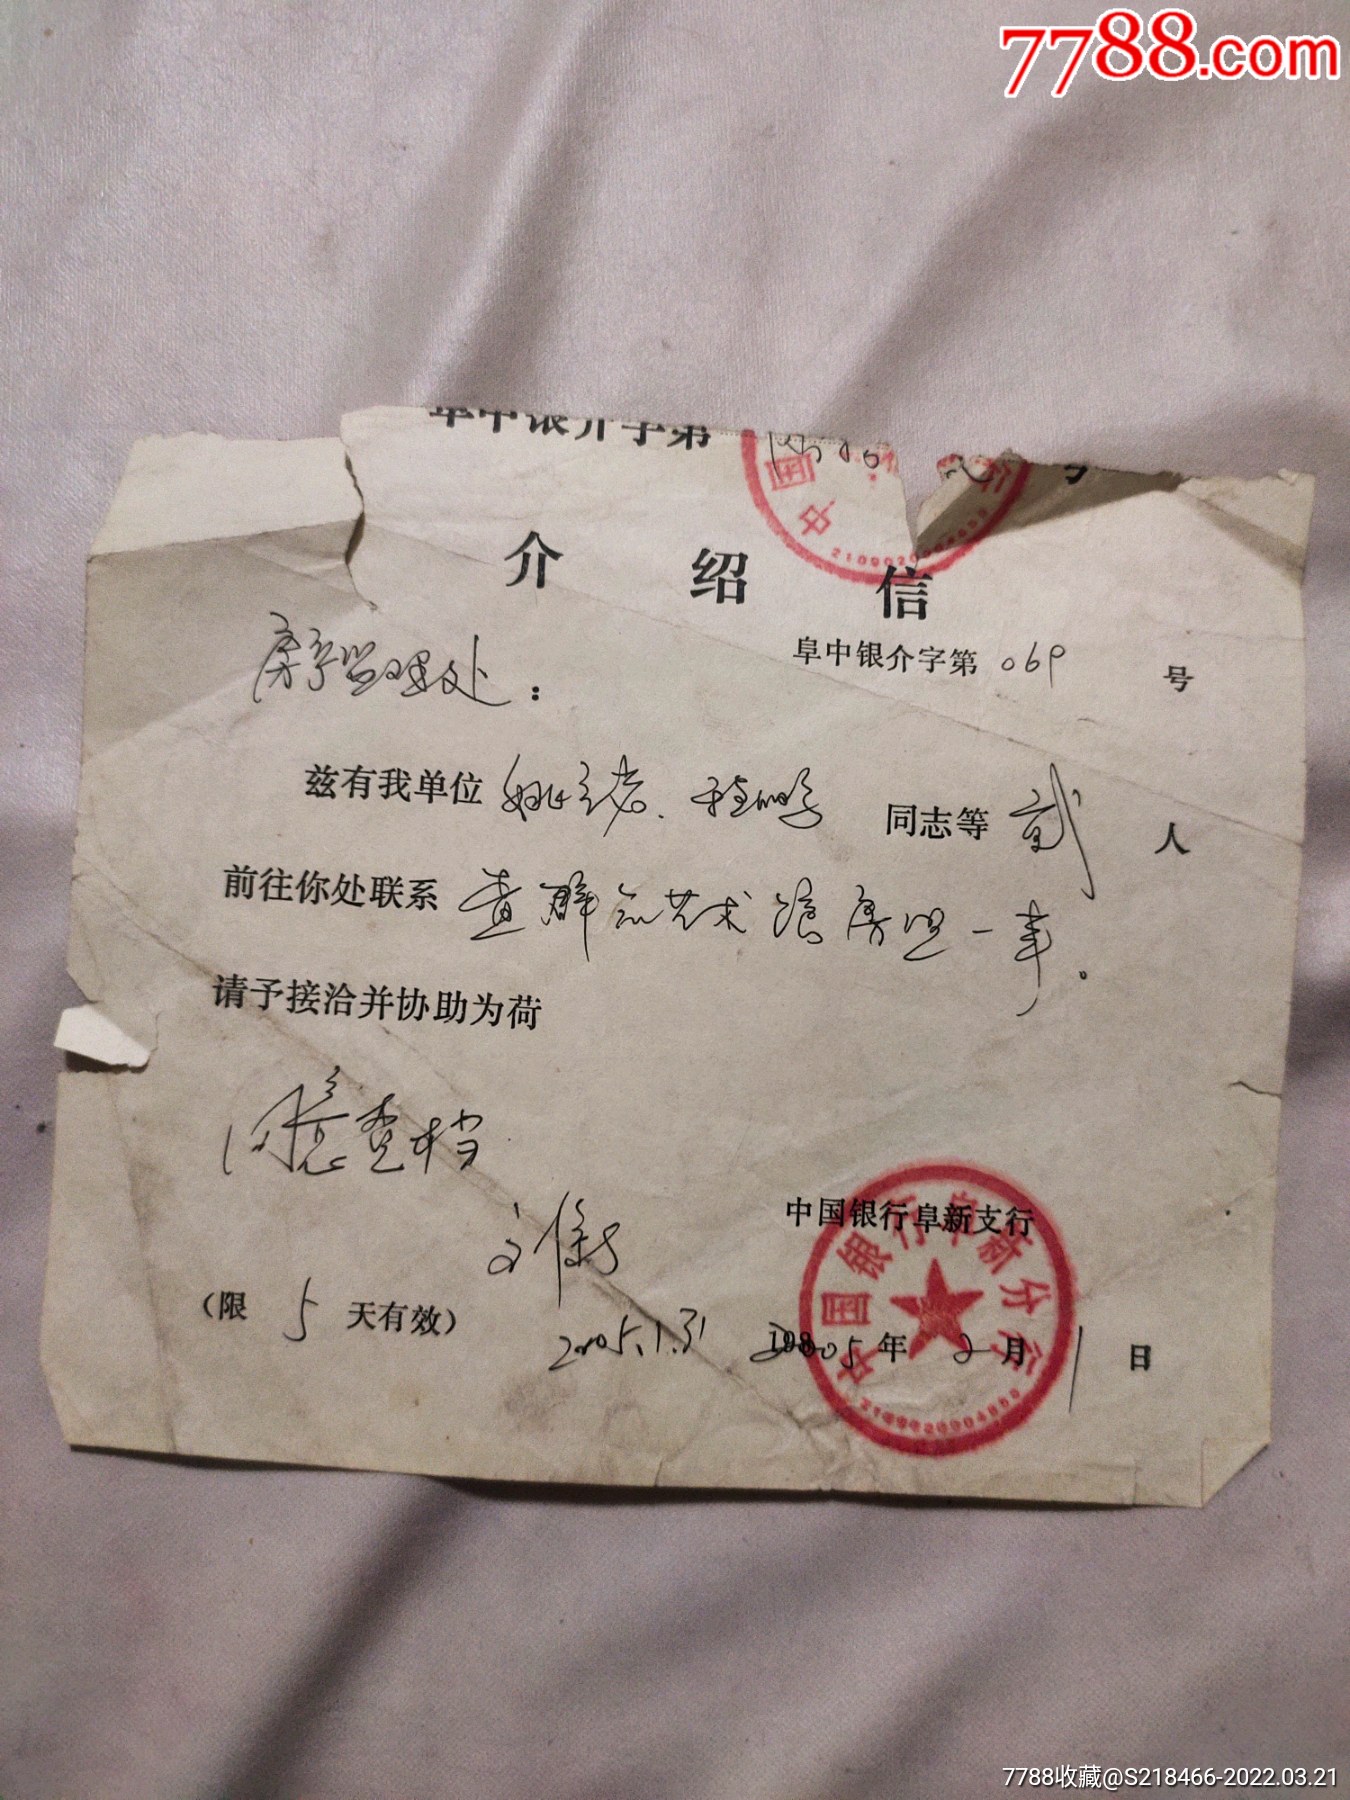 7788.com
阜中银介字第 号
介绍信
阜中银介字第069号
房产监理处：
兹有我单位 同志等贰人
前往你处联系查群众艺术馆房照一事。
请予接洽并协助为荷
同意查档
中国银行阜新支行
中国银行阜新分行
（限5天有效）
2005.1.31 2005年2月1日
7788收藏@S218466-2022.03.21